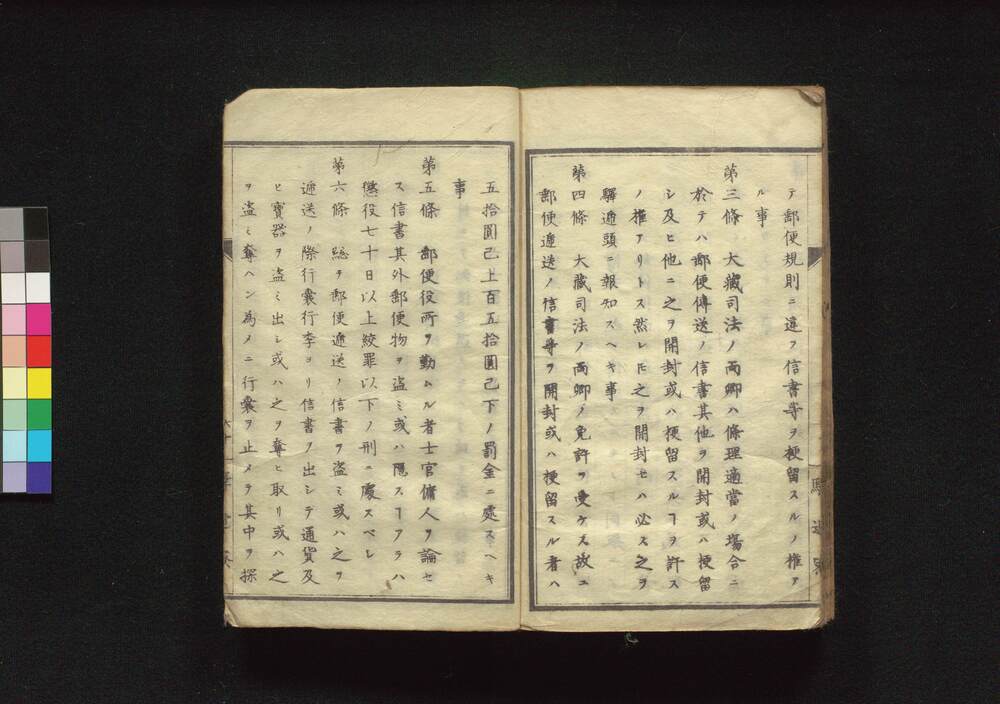 テ郵便規則ニ違フ信書等ヲ梗留スルノ權ア
ル事
第三條 大藏司法ノ両卿ハ條理適當ノ塲合ニ
於テハ郵便傳送ノ信書其他ヲ開封或ハ梗留
シ及ヒ他ニ之ヲ開封或ハ梗留スルヿヲ許ス
ノ權アリトス然レ𪜈之ヲ開封セハ必ス之ヲ
驛逓頭ニ報知スヘキ事
第四條 大藏司法ノ両卿ノ免許ヲ受ケス故ニ
郵便逓送ノ信書等ヲ開封或ハ梗留スル者ハ
五拾圓已上百五拾圓已下ノ罰金ニ處スヘキ
事
第五條 郵便役所ヲ勤ムル者士官傭人ヲ論セ
ス信書其外郵便物ヲ盗ミ或ハ隠スヿアラハ
懲役七十日以上絞罪以下ノ刑ニ處スベレ
第六條 総テ郵便逓送ノ信書ヲ盗ミ或ハ之ヲ
逓送ノ際行嚢行李ヨリ信書ヲ出シテ通貨及
ヒ寳器ヲ盗ミ出シ或ハ之ヲ奪ヒ取リ或ハ之
ヲ盗ミ奪ヘン為メニ行嚢ヲ止メテ其中ヲ探